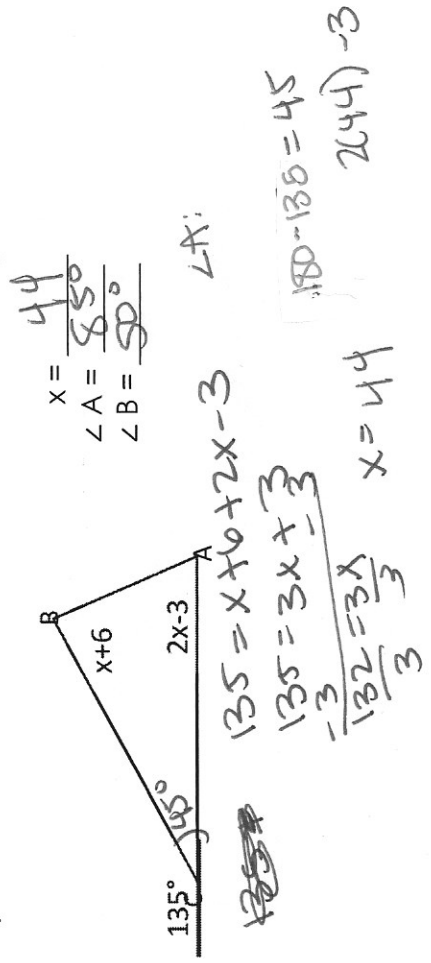 B
x+6
135°
45°
2x-3
A
x = 44
∠ A = 85°
∠ B = 50°
∠A:
135 = x+6+2x-3
135 = 3x+3
-3 -3
132 = 3x
3 3
x = 44
180-135 = 45
2(44) -3